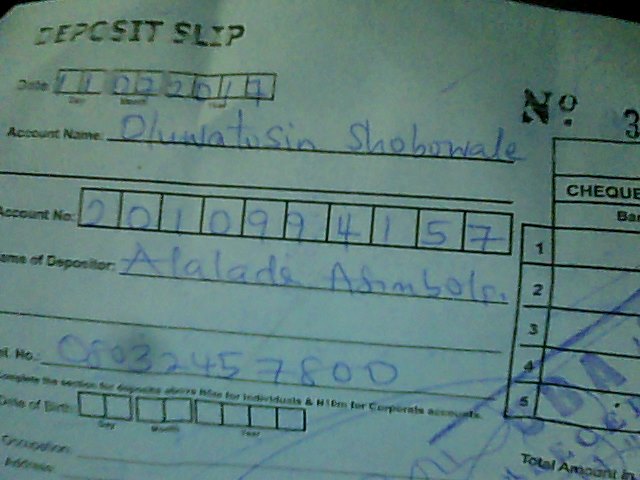 DEPOSIT SLIP
Date: 11 02 2017
Day Month Year
Nº 3
Account Name: Oluwatosin Shobowale
CHEQUE
Account No: 2010994157
Name of Depositor: Alalade
1
2
3
4
5
Tel. No.: 08032457800
Complete the section for deposits above for Individuals & N10m for Corporate accounts.
Date of Birth:
Day Month Year
Occupation:
Address:
Total Amount in